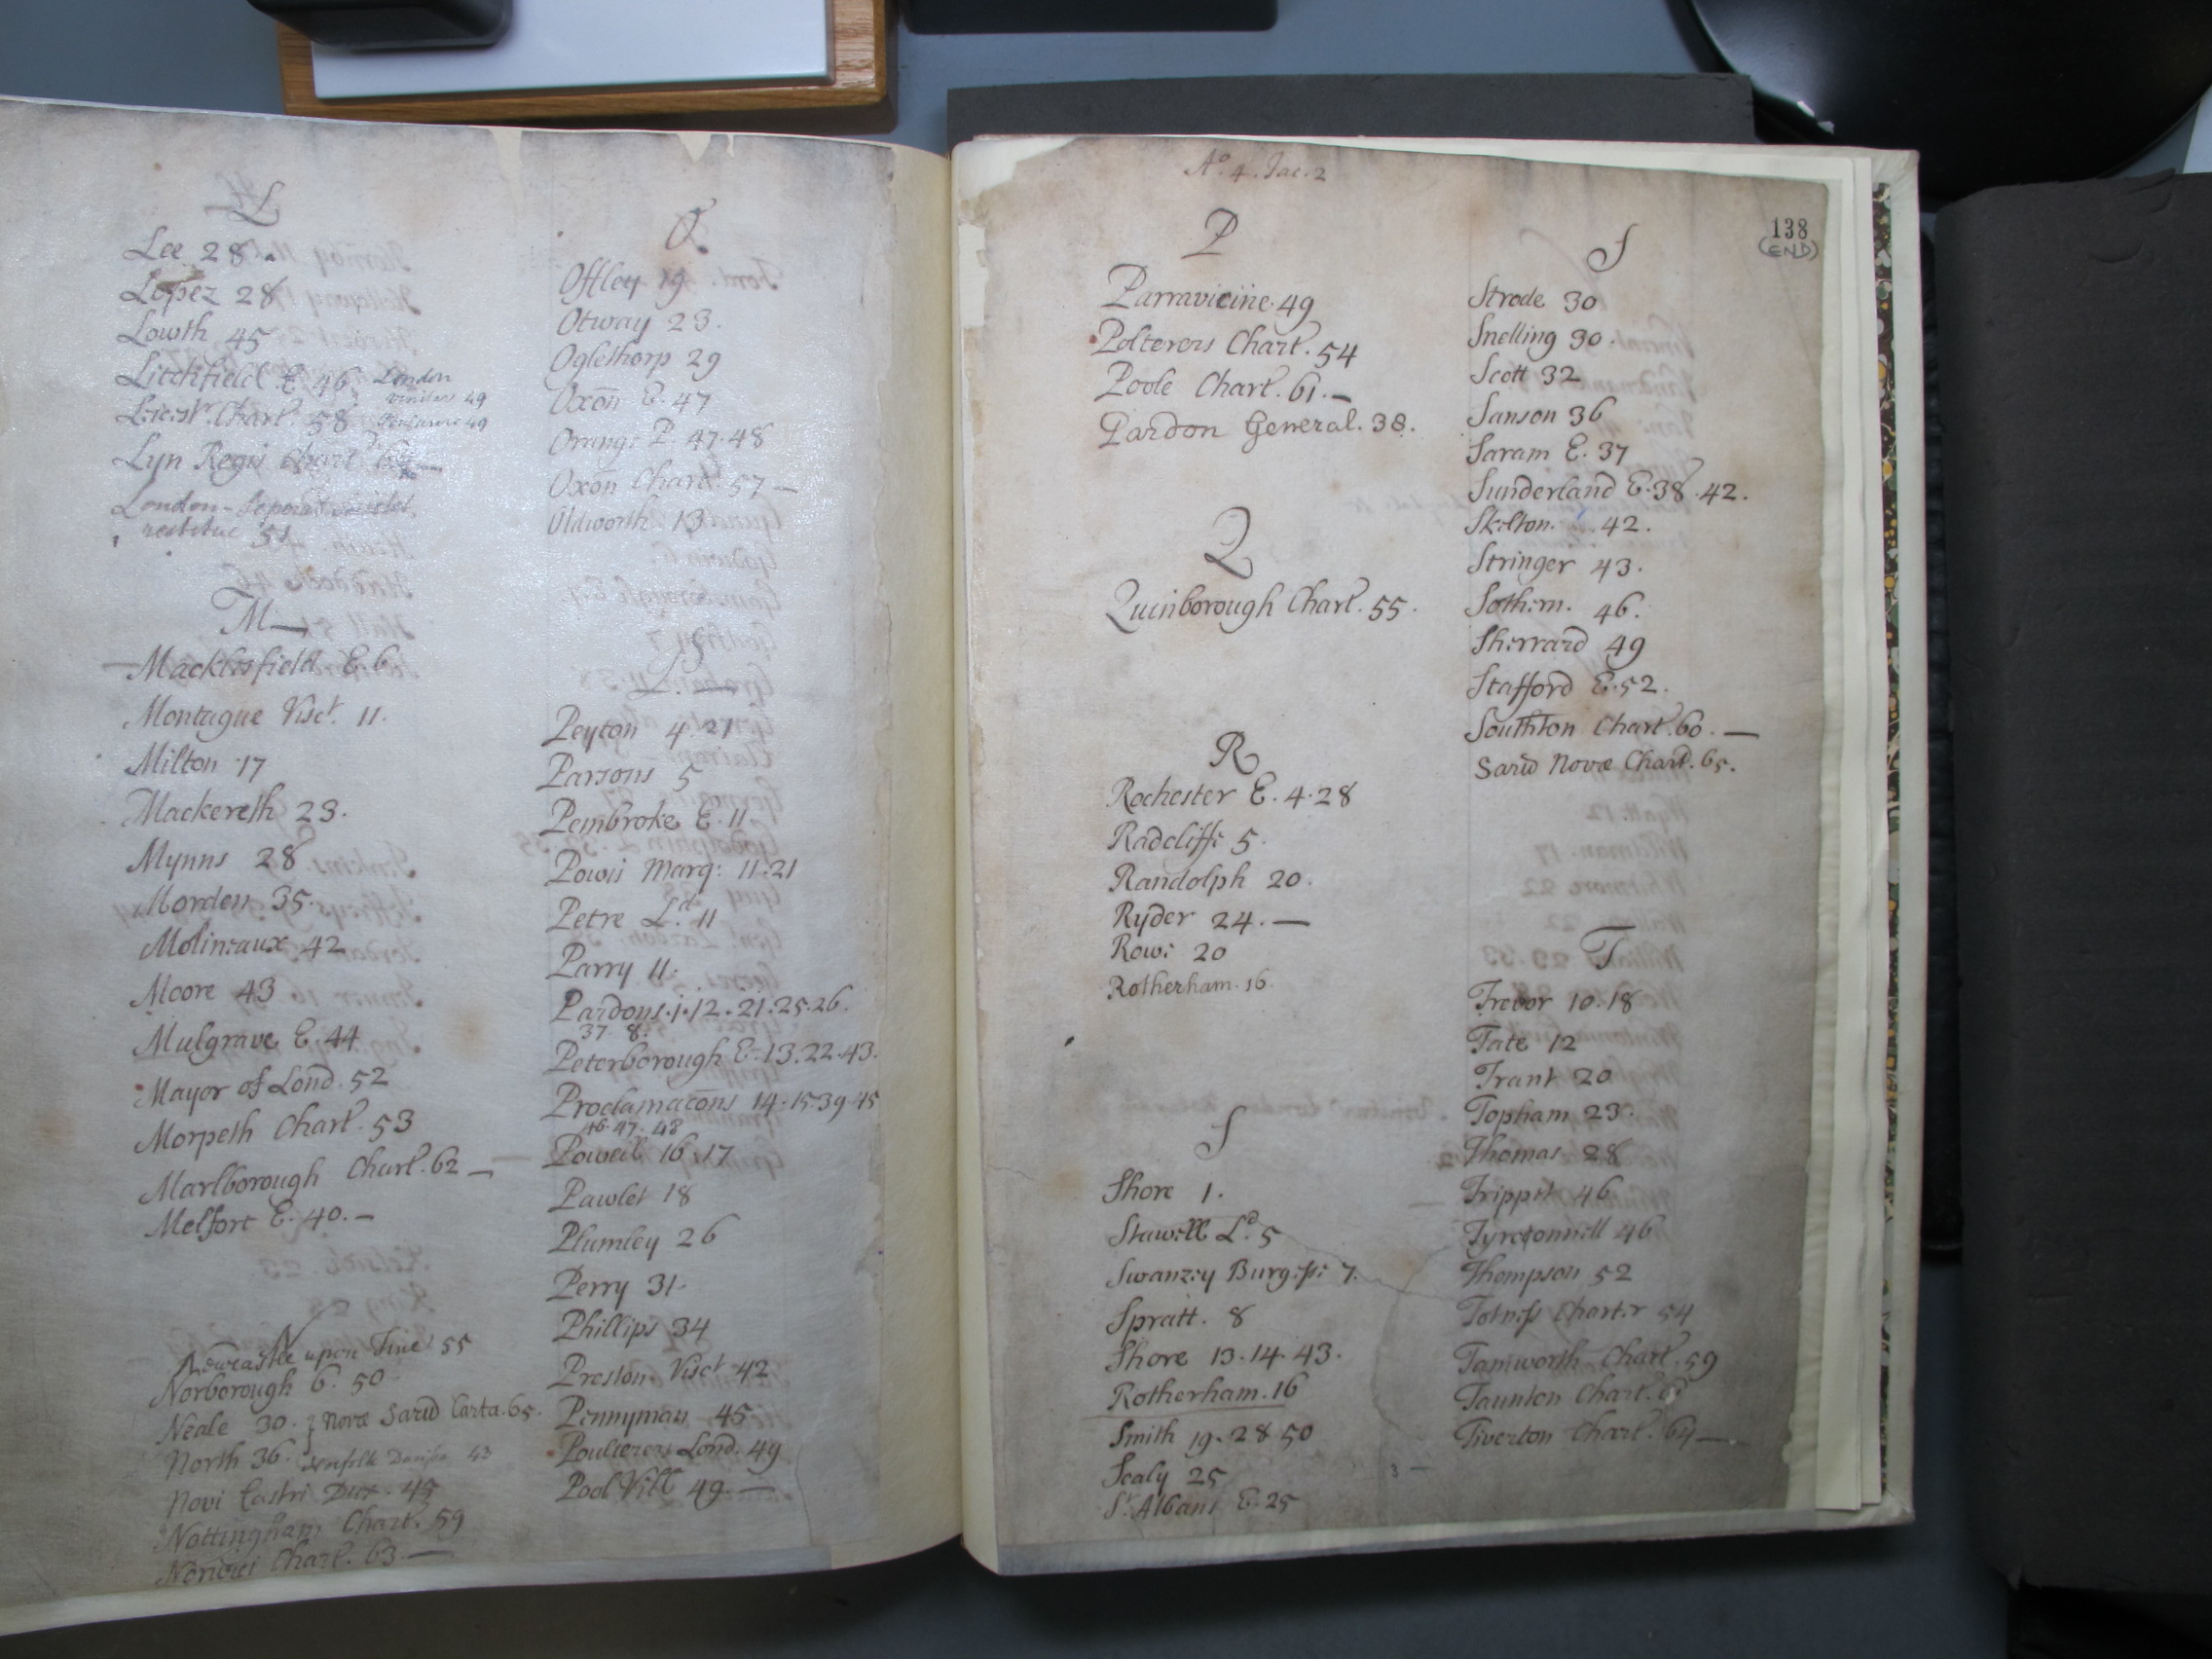 L
Lee 28
Lopez 28
Lowth 45
Litchfield E. 46
London
vinitars 49
Leicestr. Chart. 58
49
Lyn Regis Chart.
London
restitut 51
M
Macklesfield E. 6
Montague Visct. 11.
Milton 17
Mackereth 23.
Mynns 28
Morden 35.
Molineaux 42
Moore 43
Mulgrave E. 44
Mayor of Lond. 52
Morpeth Chart. 53
Marlborough Chart. 62
Melfort E. 40.
N
Newcastle upon Tine 55
Norborough 6. 50
Neale 30. Novæ Saru Carta. 65.
North 36. Norfolk 43
Novi Castri Dux. 45
Nottingham Chart. 59
Norwici Chart. 63
O
Offley 19
Otway 23.
Oglethorp 29
Oxon E. 47
Orange P. 47.48
Oxon Chart. 57
Oldworth 13
P.
Peyton 4 21
Parsons 5
Pembroke E. 11.
Powis Marq: 11.21
Petre Ld. 11
Parry 11.
Pardons.1.12.21.25.26.
37 8.
Peterborough E. 13.22.43.
Proclamacons 14.15.39.45
46.47.48
Powell 16.17
Pawlet 18
Plumley 26
Perry 31.
Phillips 34
Preston Visct 42
Pennyman 45
Poulterers Lond. 49
Pool Vill 49.
Ao. 4. Jac. 2
138
(END)
P
Parravicine. 49
Polterers Chart. 54
Poole Chart. 61.
Pardon General. 38.
Q
Quinborough Chart. 55.
R
Rochester E. 4.28
Radcliffe 5.
Randolph 20.
Ryder 24.
Rowe 20
Rotherham. 16.
S
Shore 1.
Stawell Ld. 5
Swanzey Burgesse 7.
Spratt. 8
Shore 13.14.43.
Rotherham. 16
Smith 19.28.50
Scaly 25
St. Albans E. 25
S
Strode 30
Snelling 30.
Scott 32
Sanson 36
Saram E. 37
Sunderland E. 38.42.
Skelton. 42.
Stringer 43.
Sothern. 46.
Sherrard 49
Stafford E. 52.
Southton Chart. 60.
Saru Novæ Chart. 65.
T
Trevor 10.18
Tate 12
Trant 20
Topham 23.
Thomas 28
Trippet 46
Tyrconnell 46
Thompson 52
Totness Charter 54
Tamworth Chart. 59
Taunton Chart.
Tiverton Chart. 64